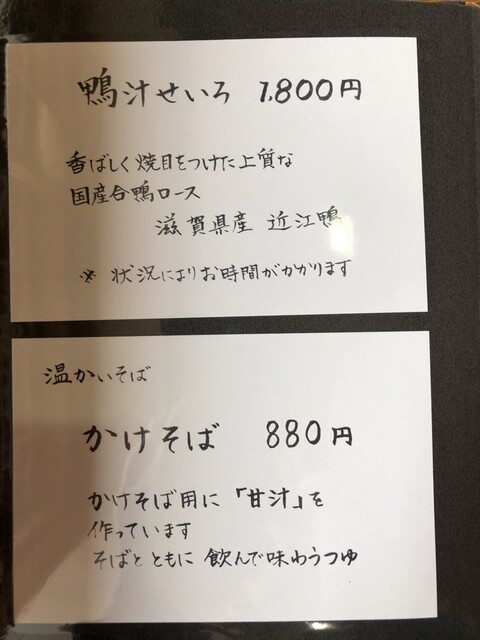 鴨汁せいろ 1,800円
香ばしく焼目をつけた上質な
国産合鴨ロース
滋賀県産 近江鴨
※ 状況によりお時間がかかります
温かいそば
かけそば 880円
かけそば用に「甘汁」を
作っています
そばとともに 飲んで味わうつゆ